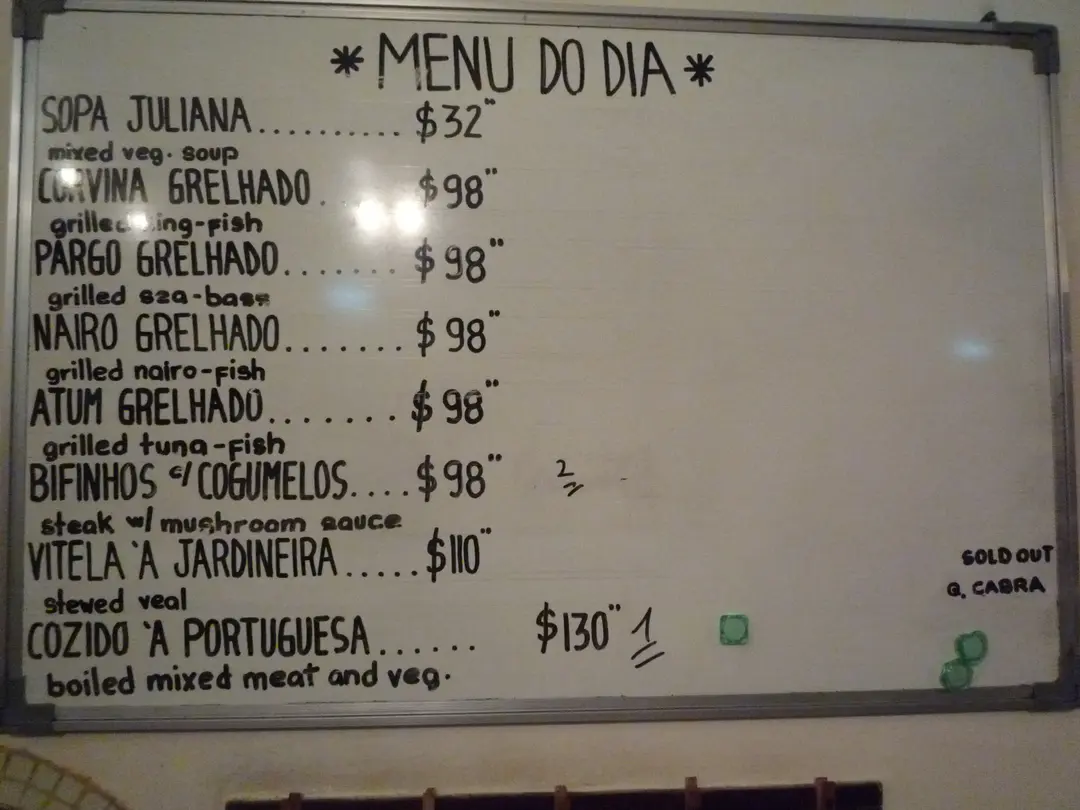 * MENU DO DIA *
SOPA JULIANA.......... $32"
mixed veg. soup
CORVINA GRELHADO. $98"
grilled king-fish
PARGO GRELHADO....... $98"
grilled sea-bass
NAIRO GRELHADO....... $98"
grilled nairo-fish
ATUM GRELHADO....... $98"
grilled tuna-fish
BIFINHOS c/ COGUMELOS.... $98" 2
steak w/ mushroom sauce
VITELA 'A JARDINEIRA..... $110"
stewed veal
COZIDO 'A PORTUGUESA...... $130" 1
boiled mixed meat and veg.
SOLD OUT
G. CABRA